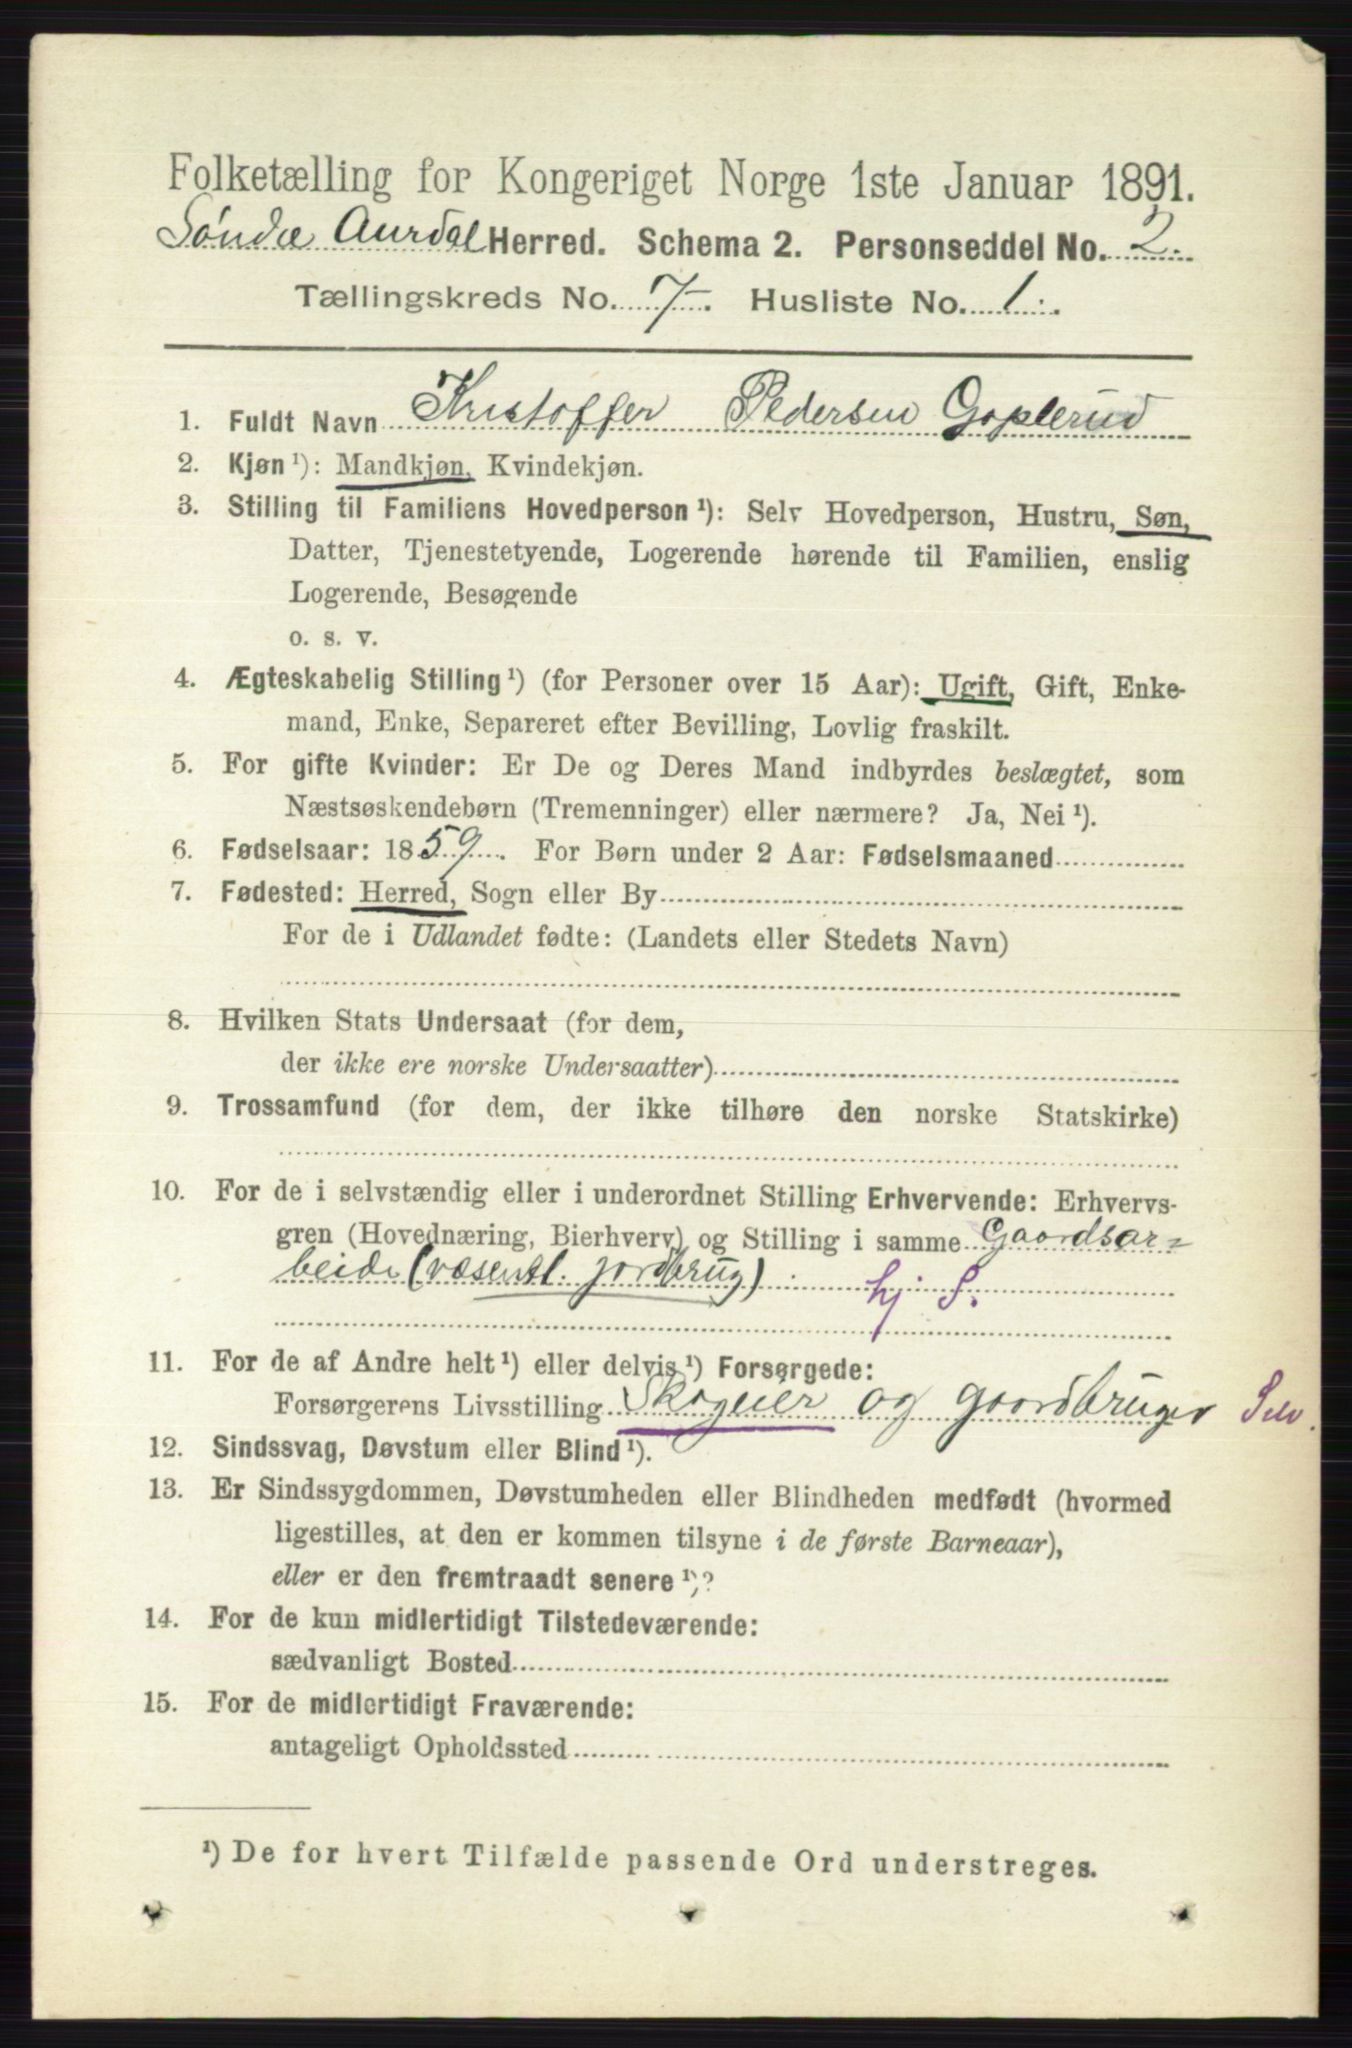 Folketælling for Kongeriget Norge 1ste Januar 1891.
Søndre Aurdal Herred. Schema 2. Personseddel No. 2.
Tællingskreds No. 7. Husliste No. 1.
1. Fuldt Navn Kristoffer Pedersen Goplerud
2. Kjøn¹): Mandkjøn, Kvindekjøn.
3. Stilling til Familiens Hovedperson¹): Selv Hovedperson, Hustru, Søn,
Datter, Tjenestetyende, Logerende hørende til Familien, enslig
Logerende, Besøgende
o. s. v.
4. Ægteskabelig Stilling¹) (for Personer over 15 Aar): Ugift, Gift, Enke-
mand, Enke, Separeret efter Bevilling, Lovlig fraskilt.
5. For gifte Kvinder: Er De og Deres Mand indbyrdes beslægtet, som
Næstsøskendebørn (Tremenninger) eller nærmere? Ja, Nei¹).
6. Fødselsaar: 1859. For Børn under 2 Aar: Fødselsmaaned
7. Fødested: Herred, Sogn eller By
For de i Udlandet fødte: (Landets eller Stedets Navn)
8. Hvilken Stats Undersaat (for dem,
der ikke ere norske Undersaatter)
9. Trossamfund (for dem, der ikke tilhøre den norske Statskirke)
10. For de i selvstændig eller i underordnet Stilling Erhvervende: Erhvervs-
gren (Hovednæring, Bierhverv) og Stilling i samme Gaardsar=
beide (væsentl. jordbrug) hj S.
11. For de af Andre helt¹) eller delvis¹) Forsørgede:
Forsørgerens Livsstilling Skogeier og gaardbruger Selv.
12. Sindssvag, Døvstum eller Blind¹).
13. Er Sindssygdommen, Døvstumheden eller Blindheden medfødt (hvormed
ligestilles, at den er kommen tilsyne i de første Barneaar),
eller er den fremtraadt senere¹)?
14. For de kun midlertidigt Tilstedeværende:
sædvanligt Bosted
15. For de midlertidigt Fraværende:
antageligt Opholdssted
¹) De for hvert Tilfælde passende Ord understreges.